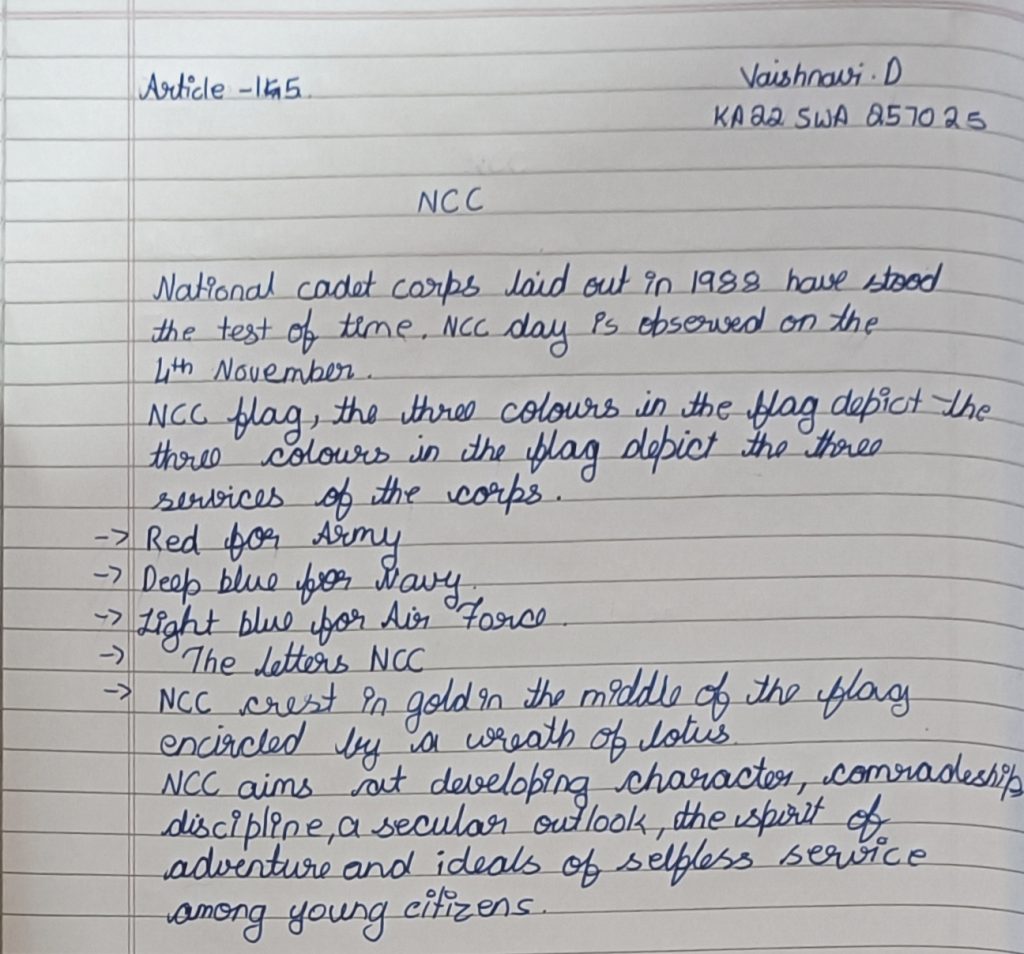 Article - 145.
Vaishnavi. D
KA22 SWA 257025
NCC
National cadet corps laid out in 1988 have stood
the test of time. NCC day is observed on the
4th November.
NCC flag, the three colours in the flag depict the
three colours in the flag depict the three
services of the corps.
-> Red for Army
-> Deep blue for Navy.
-> Light blue for Air Force.
-> The letters NCC
-> NCC crest in gold in the middle of the flag
encircled by a wreath of lotus.
NCC aims at developing character, comradeship
discipline, a secular outlook, the spirit of
adventure and ideals of selfless service
among young citizens.